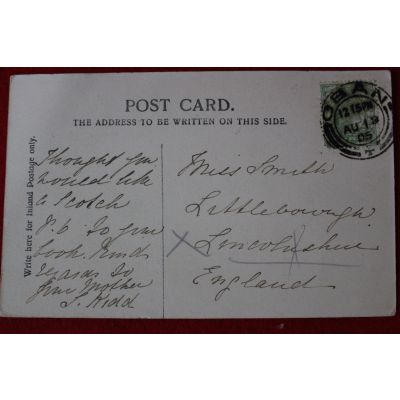 POST CARD.
THE ADDRESS TO BE WRITTEN ON THIS SIDE.
Write here for Inland Postage only.
Thought you
would like
a Scotch
P.C. to your
book. Kind
regards to
your Mother
Kidd
Miss Smith
Littleborough
Lincolnshire
England
OBAN
12 15PM
AU 13
05